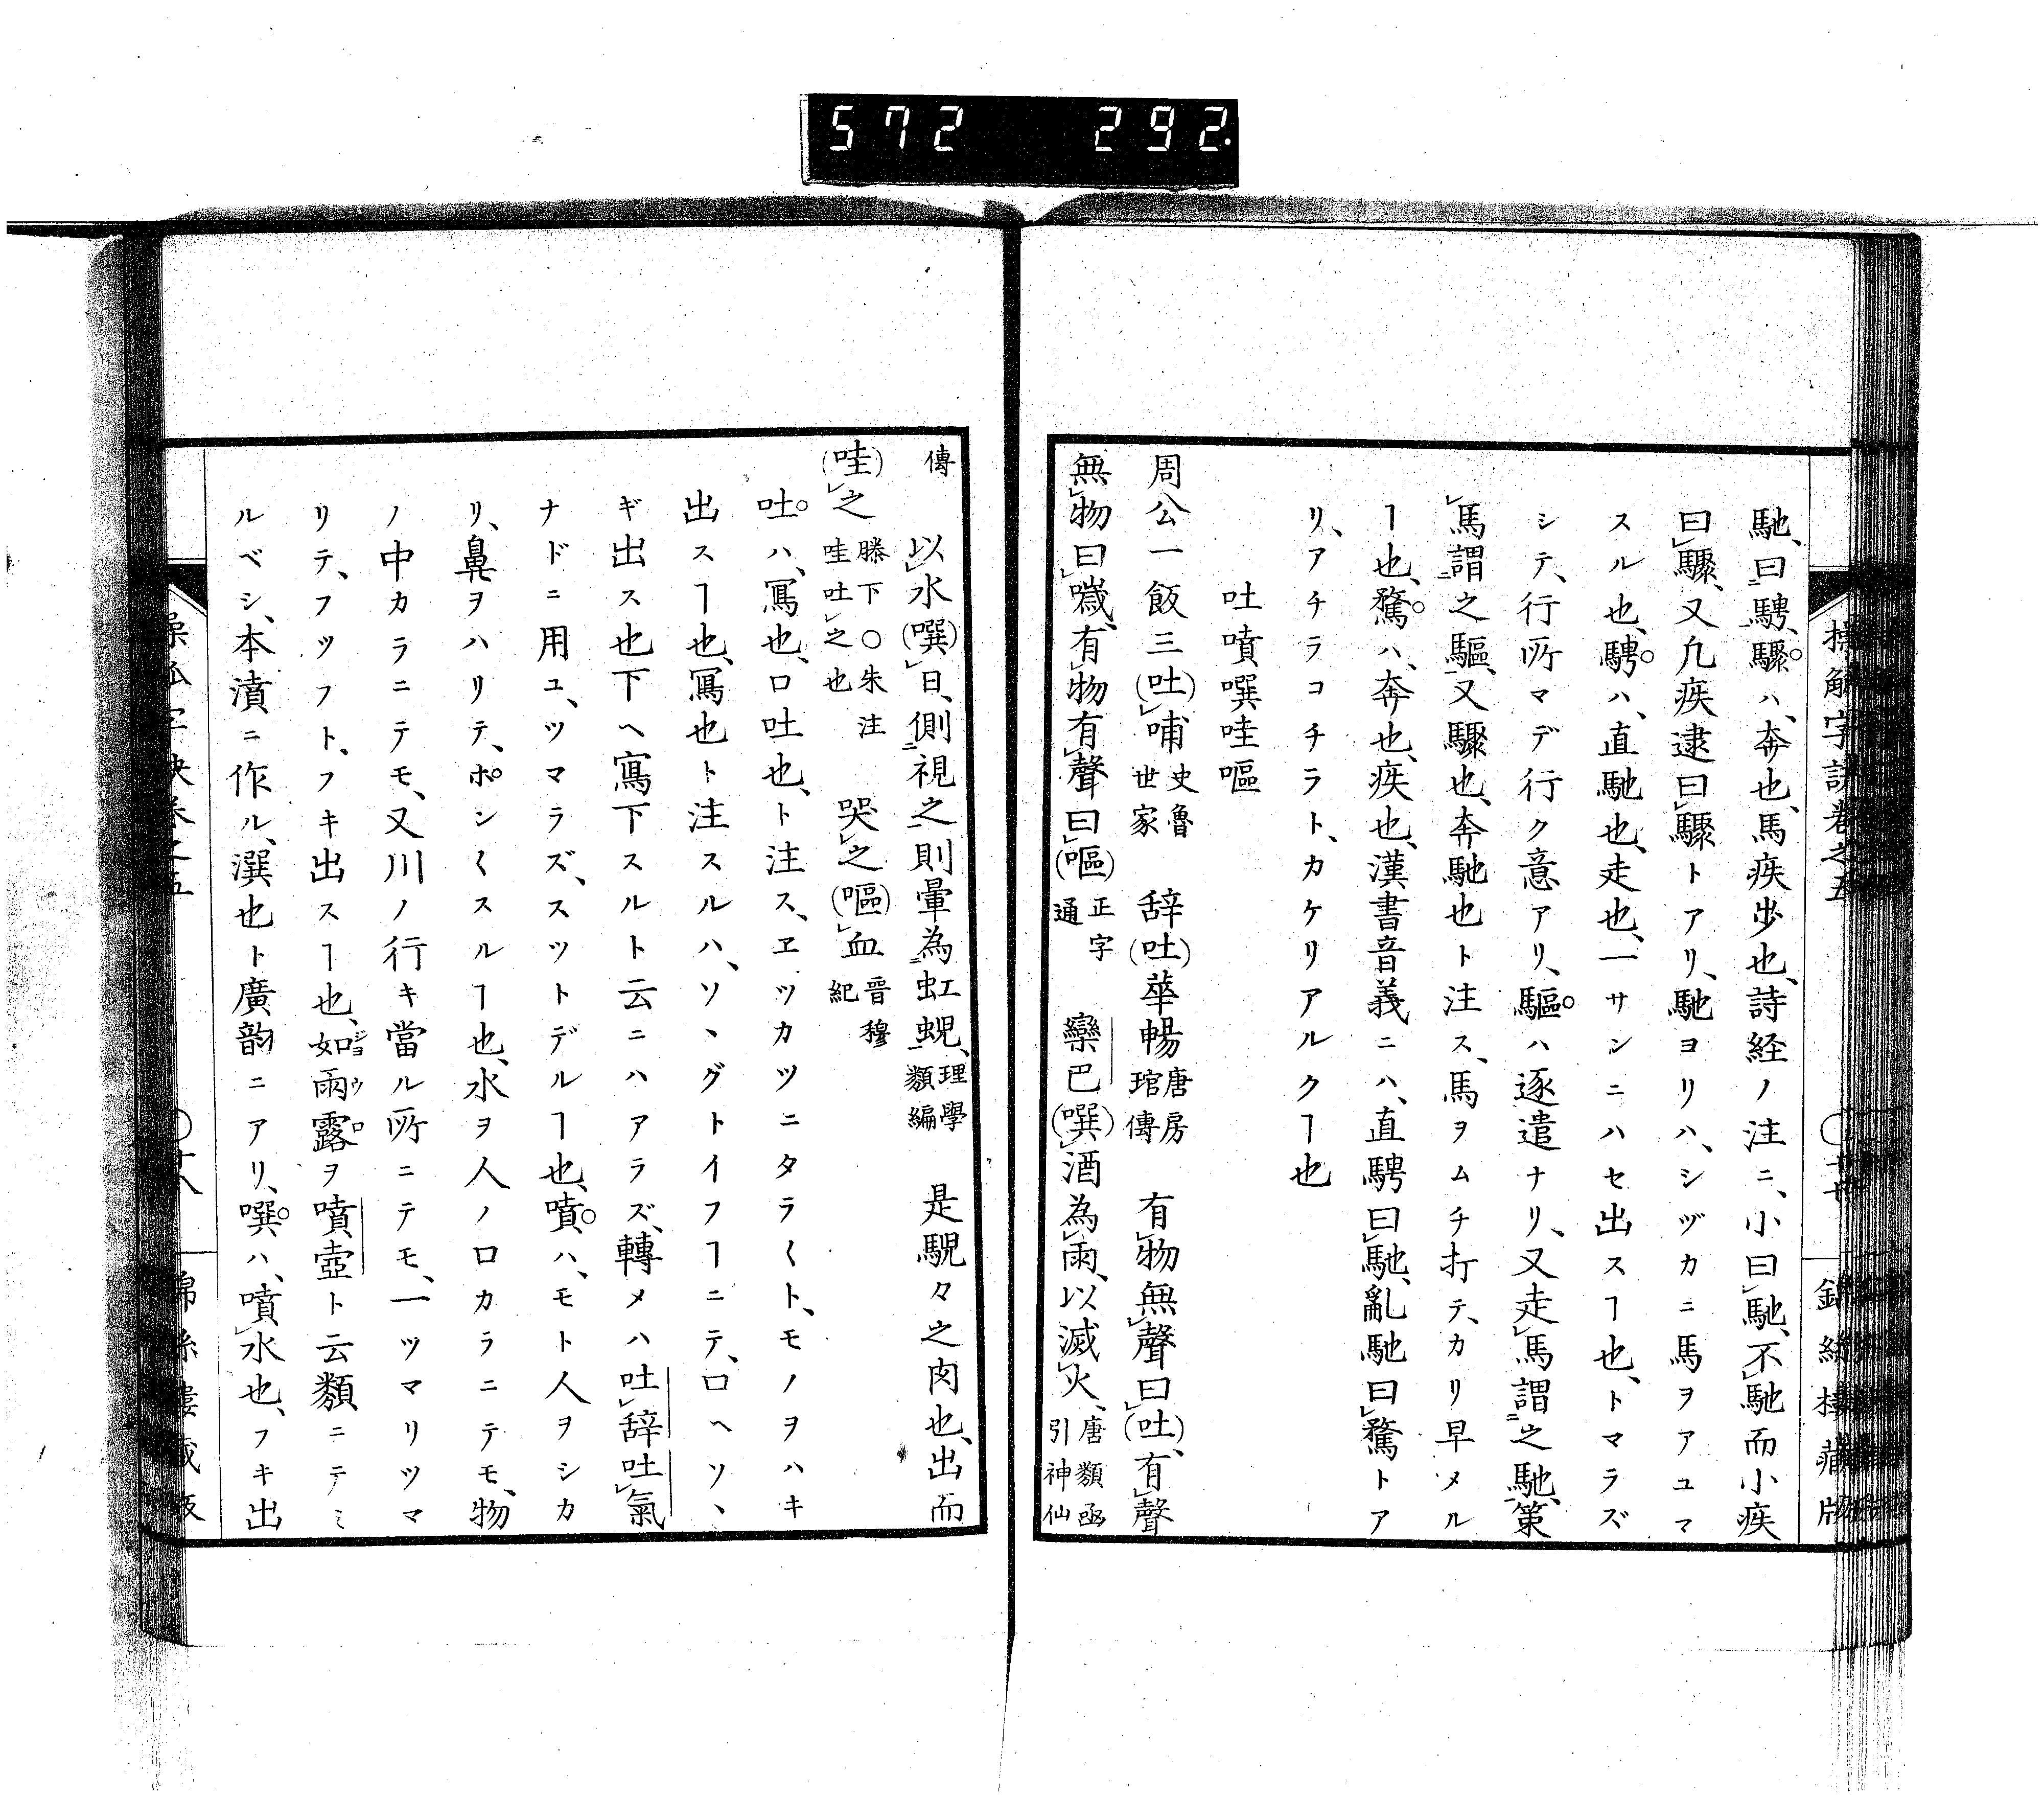 572 292.
馳、曰騁、驟ハ、奔也、馬疾歩也、詩経ノ注ニ、小曰馳、不馳而小疾
曰驟、又凢疾逮曰驟トアリ、馳ヨリハ、シヅカニ馬ヲアユマ
スル也、騁ハ、直馳也、走也、一サンニハセ出スヿ也、トマラズ
シテ、行所マデ行ク意アリ、驅ハ逐遣ナリ、又走馬謂之馳、策
馬謂之驅、又驟也、奔馳也ト注ス、馬ヲムチ打テ、カリ早メル
ヿ也、騖ハ、奔也、疾也、漢書音義ニハ、直騁曰馳、亂馳曰騖トア
リ、アチラコチラト、カケリアルクヿ也
吐噴噀哇嘔
周公一飯三(吐)哺史魯世家 辞(吐)華暢唐房琯傳 有物無聲曰(吐)、有聲
無物曰噦、有物有聲曰(嘔)正字通 欒巴(噀)酒為雨、以滅火、唐類函引神仙
傳 以水(噀)日、側視之則暈為虹蜺、理學類編 是鶃々之肉也、出而
(哇)之滕下○朱注哇吐之也 哭之(嘔)血晉穆紀
吐ハ、寫也、口吐也、ト注ス、ヱツカツニタラ〱ト、モノヲハキ
出スヿ也、寫也ト注スルハ、ソヽグトイフヿニテ、口ヘソヽ
ギ出ス也下ヘ寫下スルト云ニハアラズ、轉メハ吐辞吐氣
ナドニ用ユ、ツマラズ、スツトデルヿ也、噴ハ、モト人ヲシカ
リ、鼻ヲハリテ、ポン〱スルヿ也、水ヲ人ノ口カラニテモ、物
ノ中カラニテモ、又川ノ行キ當ル所ニテモ、一ツマリツマ
リテ、フツフト、フキ出スヿ也、如雨露ジヨウロヲ噴壺ト云類ニテミ
ルベシ、本濆ニ作ル、潠也ト廣韵ニアリ、噀ハ、噴水也、フキ出